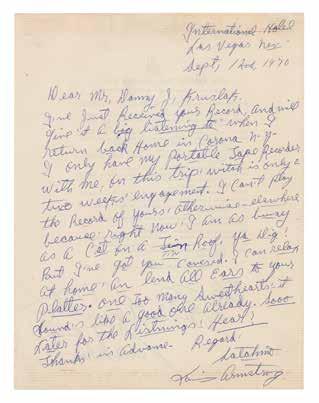 International Hotel
Las Vegas Nev.
Sept, 1970
Dear Mr, Danny J, Kruslak.
I've Just Received your Record, And will
give it a big listening to when I
return back Home in Corona N-Y-
I only have my Portable Tape Recorder
with me, on this trip: witch is only a
two weeks' engagement. I Can't Play
the Record of yours: otherwise - elsewhere
because, right Now: I am as busy
as a Cat on a Roof, ya dig?
But I've got you Covered: I can relax
at home: an lend All Ears to your
Platter. one Too Many Sweethearts: it
sounds like a good one already. Sooo
Later for the Listnings: Hear?
Thanks: in Advance. Regard:
Satchmo
Louis Armstrong